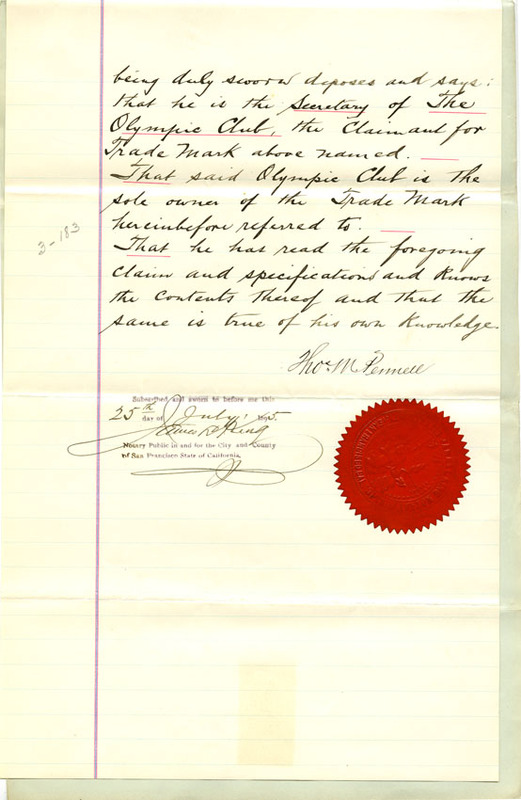 being duly sworn deposes and says:
that he is the Secretary of The
Olympic Club, the Claimant for
Trade Mark above named.
That said Olympic Club is the
sole owner of the Trade Mark
hereinbefore referred to.
That he has read the foregoing
Claim and specifications and knows
the contents thereof and that the
same is true of his own knowledge.
3-183
Thos M Pennell
Subscribed and sworn to before me this
25th day of July 1895.
King
Notary Public in and for the City and County
of San Francisco State of California.